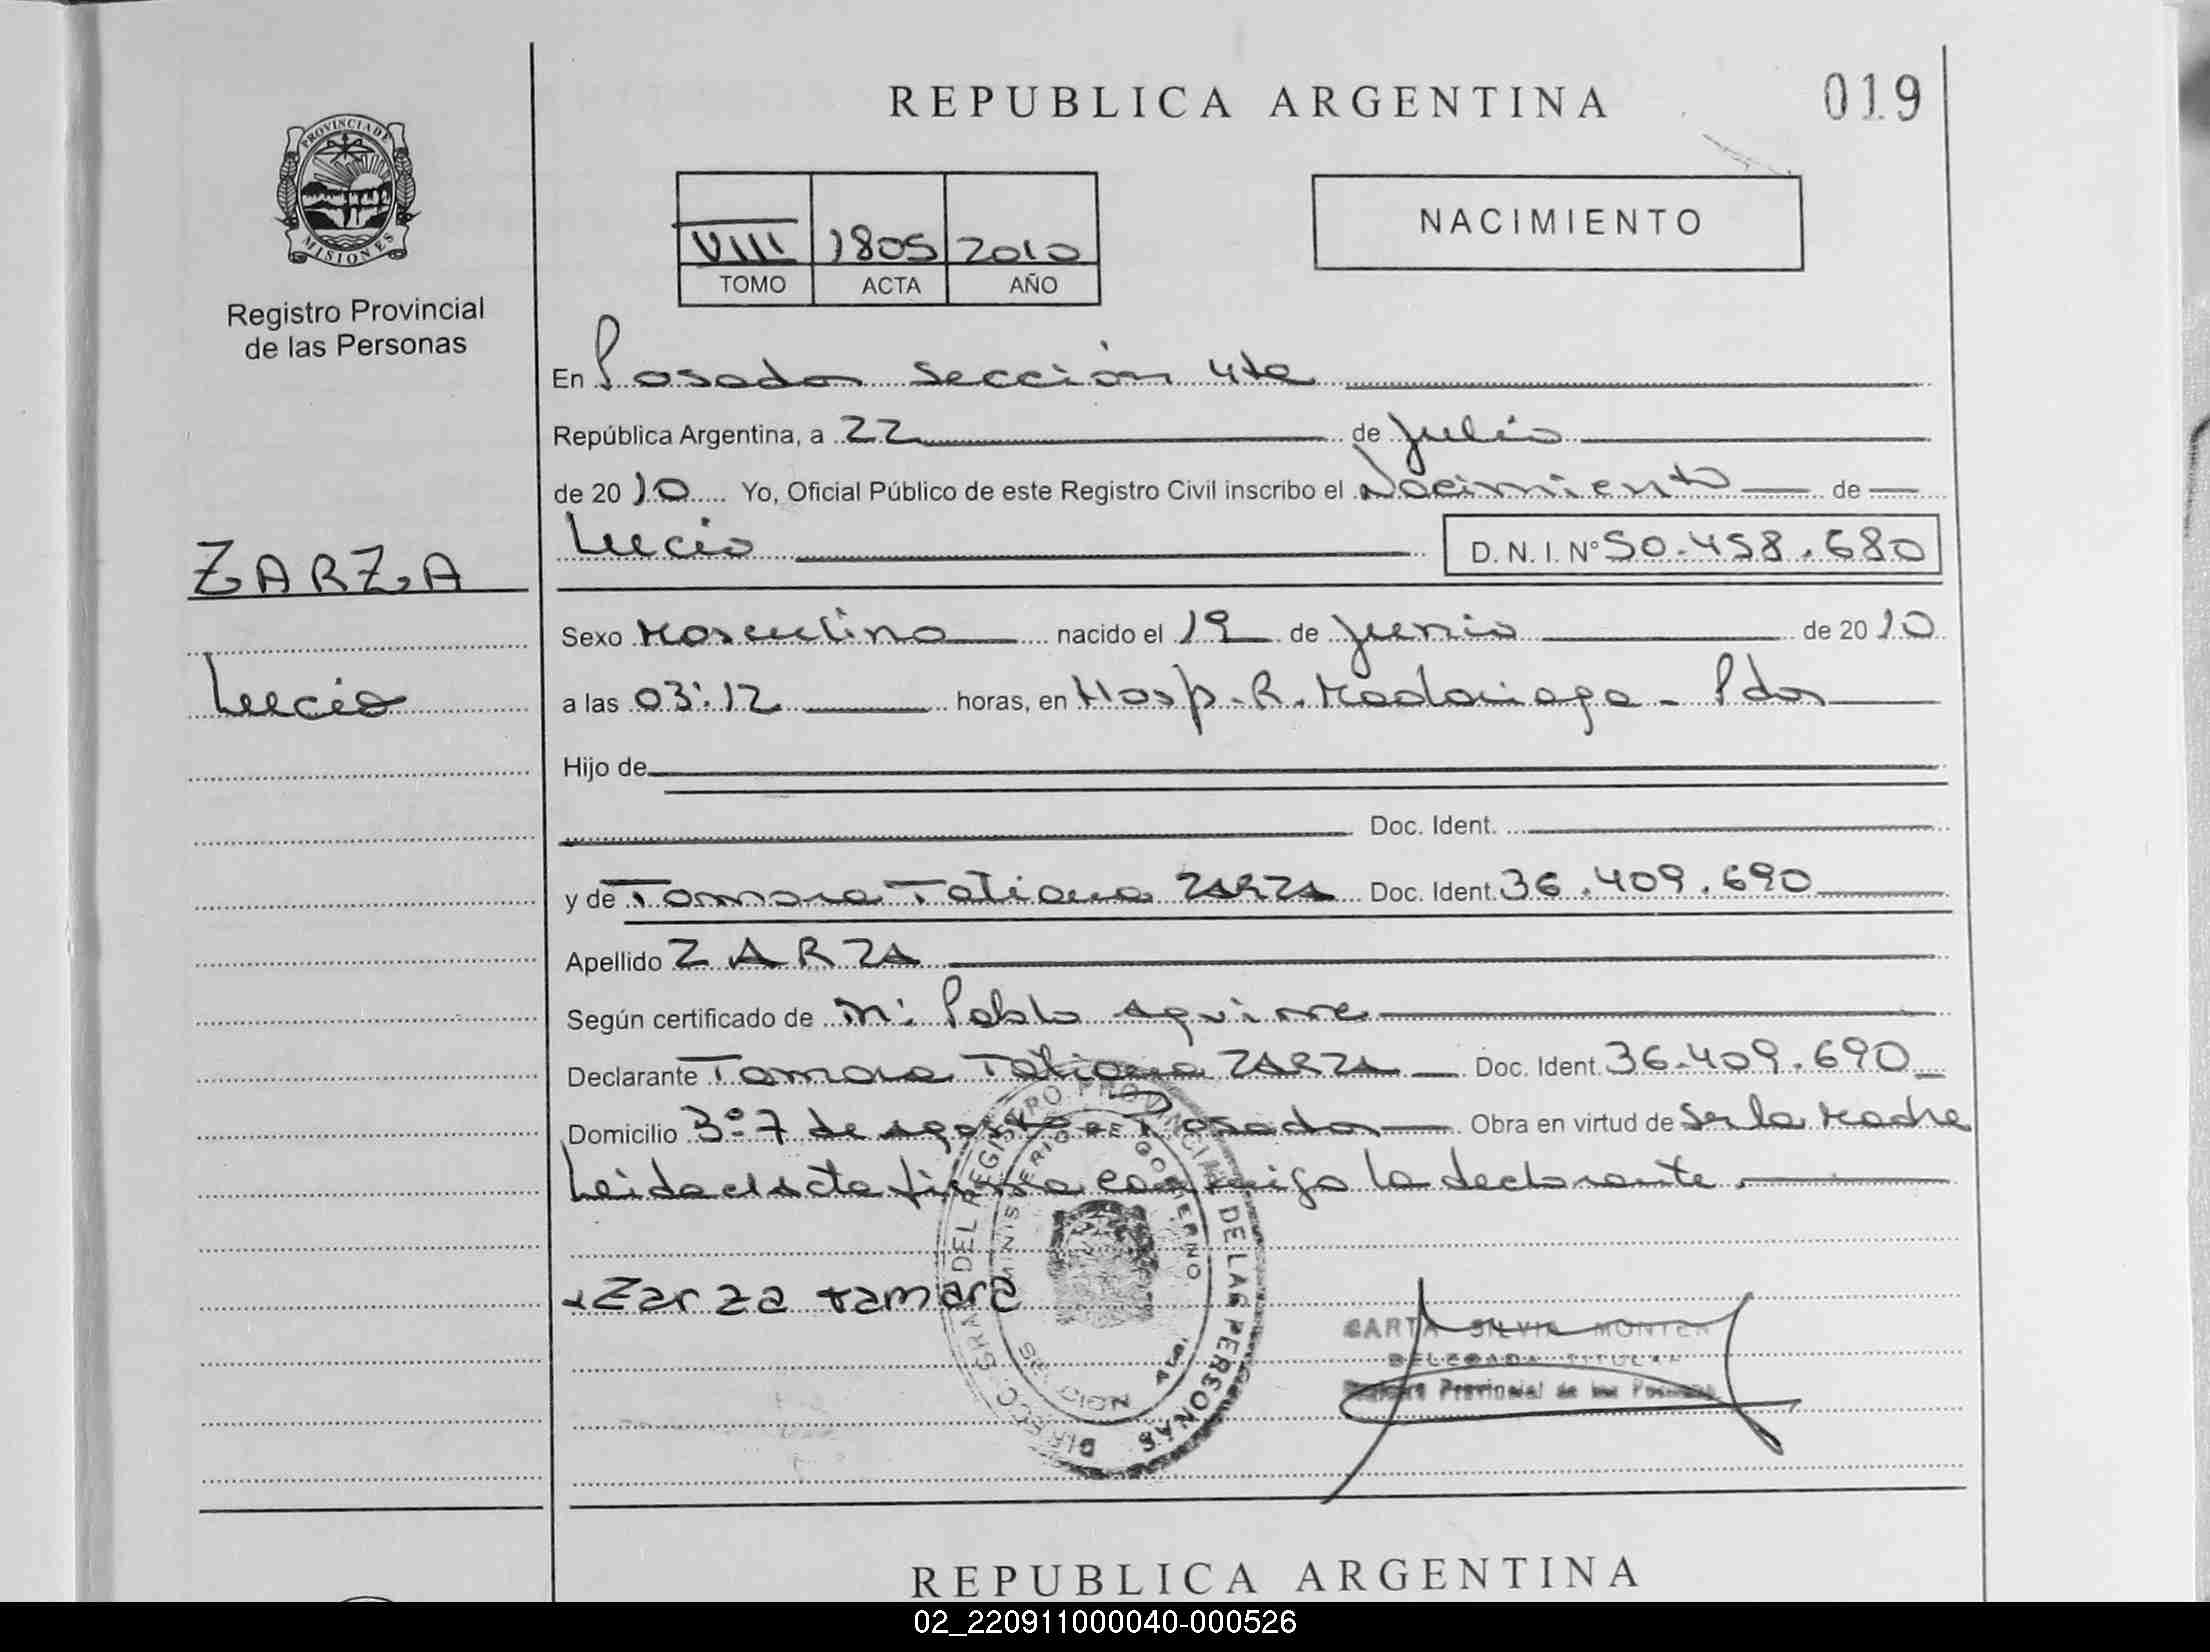 REPUBLICA ARGENTINA
019
PROVINCIA DE
MISIONES
Registro Provincial
de las Personas
VIII 1805 2010
TOMO ACTA AÑO
NACIMIENTO
En Posadas sección 4ta
República Argentina, a 22 de Julio
de 2010 Yo, Oficial Público de este Registro Civil inscribo el Nacimiento de
Lucio D. N. I. N° 50.458.680
ZARZA
Lucio
Sexo Masculino nacido el 19 de Junio de 2010
a las 03:12 horas, en Hosp. R. Madariaga - Pdas
Hijo de
Doc. Ident.
y de Tamara Tatiana ZARZA Doc. Ident. 36.409.690
Apellido ZARZA
Según certificado de Pablo Aguirre
Declarante Tamara Tatiana ZARZA Doc. Ident. 36.409.690
Domicilio 3° 7 de agosto Posadas Obra en virtud de Ser la Madre
Leida el acta firma conmigo la declarante.
Zarza tamara
DIRECC. GRAL. DEL REGISTRO PROVINCIAL DE LAS PERSONAS
MINISTERIO DE GOBIERNO
SECCION 4ta.
SILVIA
DELEGADA TITULAR
Registro Provincial de las Personas
REPUBLICA ARGENTINA
02_220911000040-000526